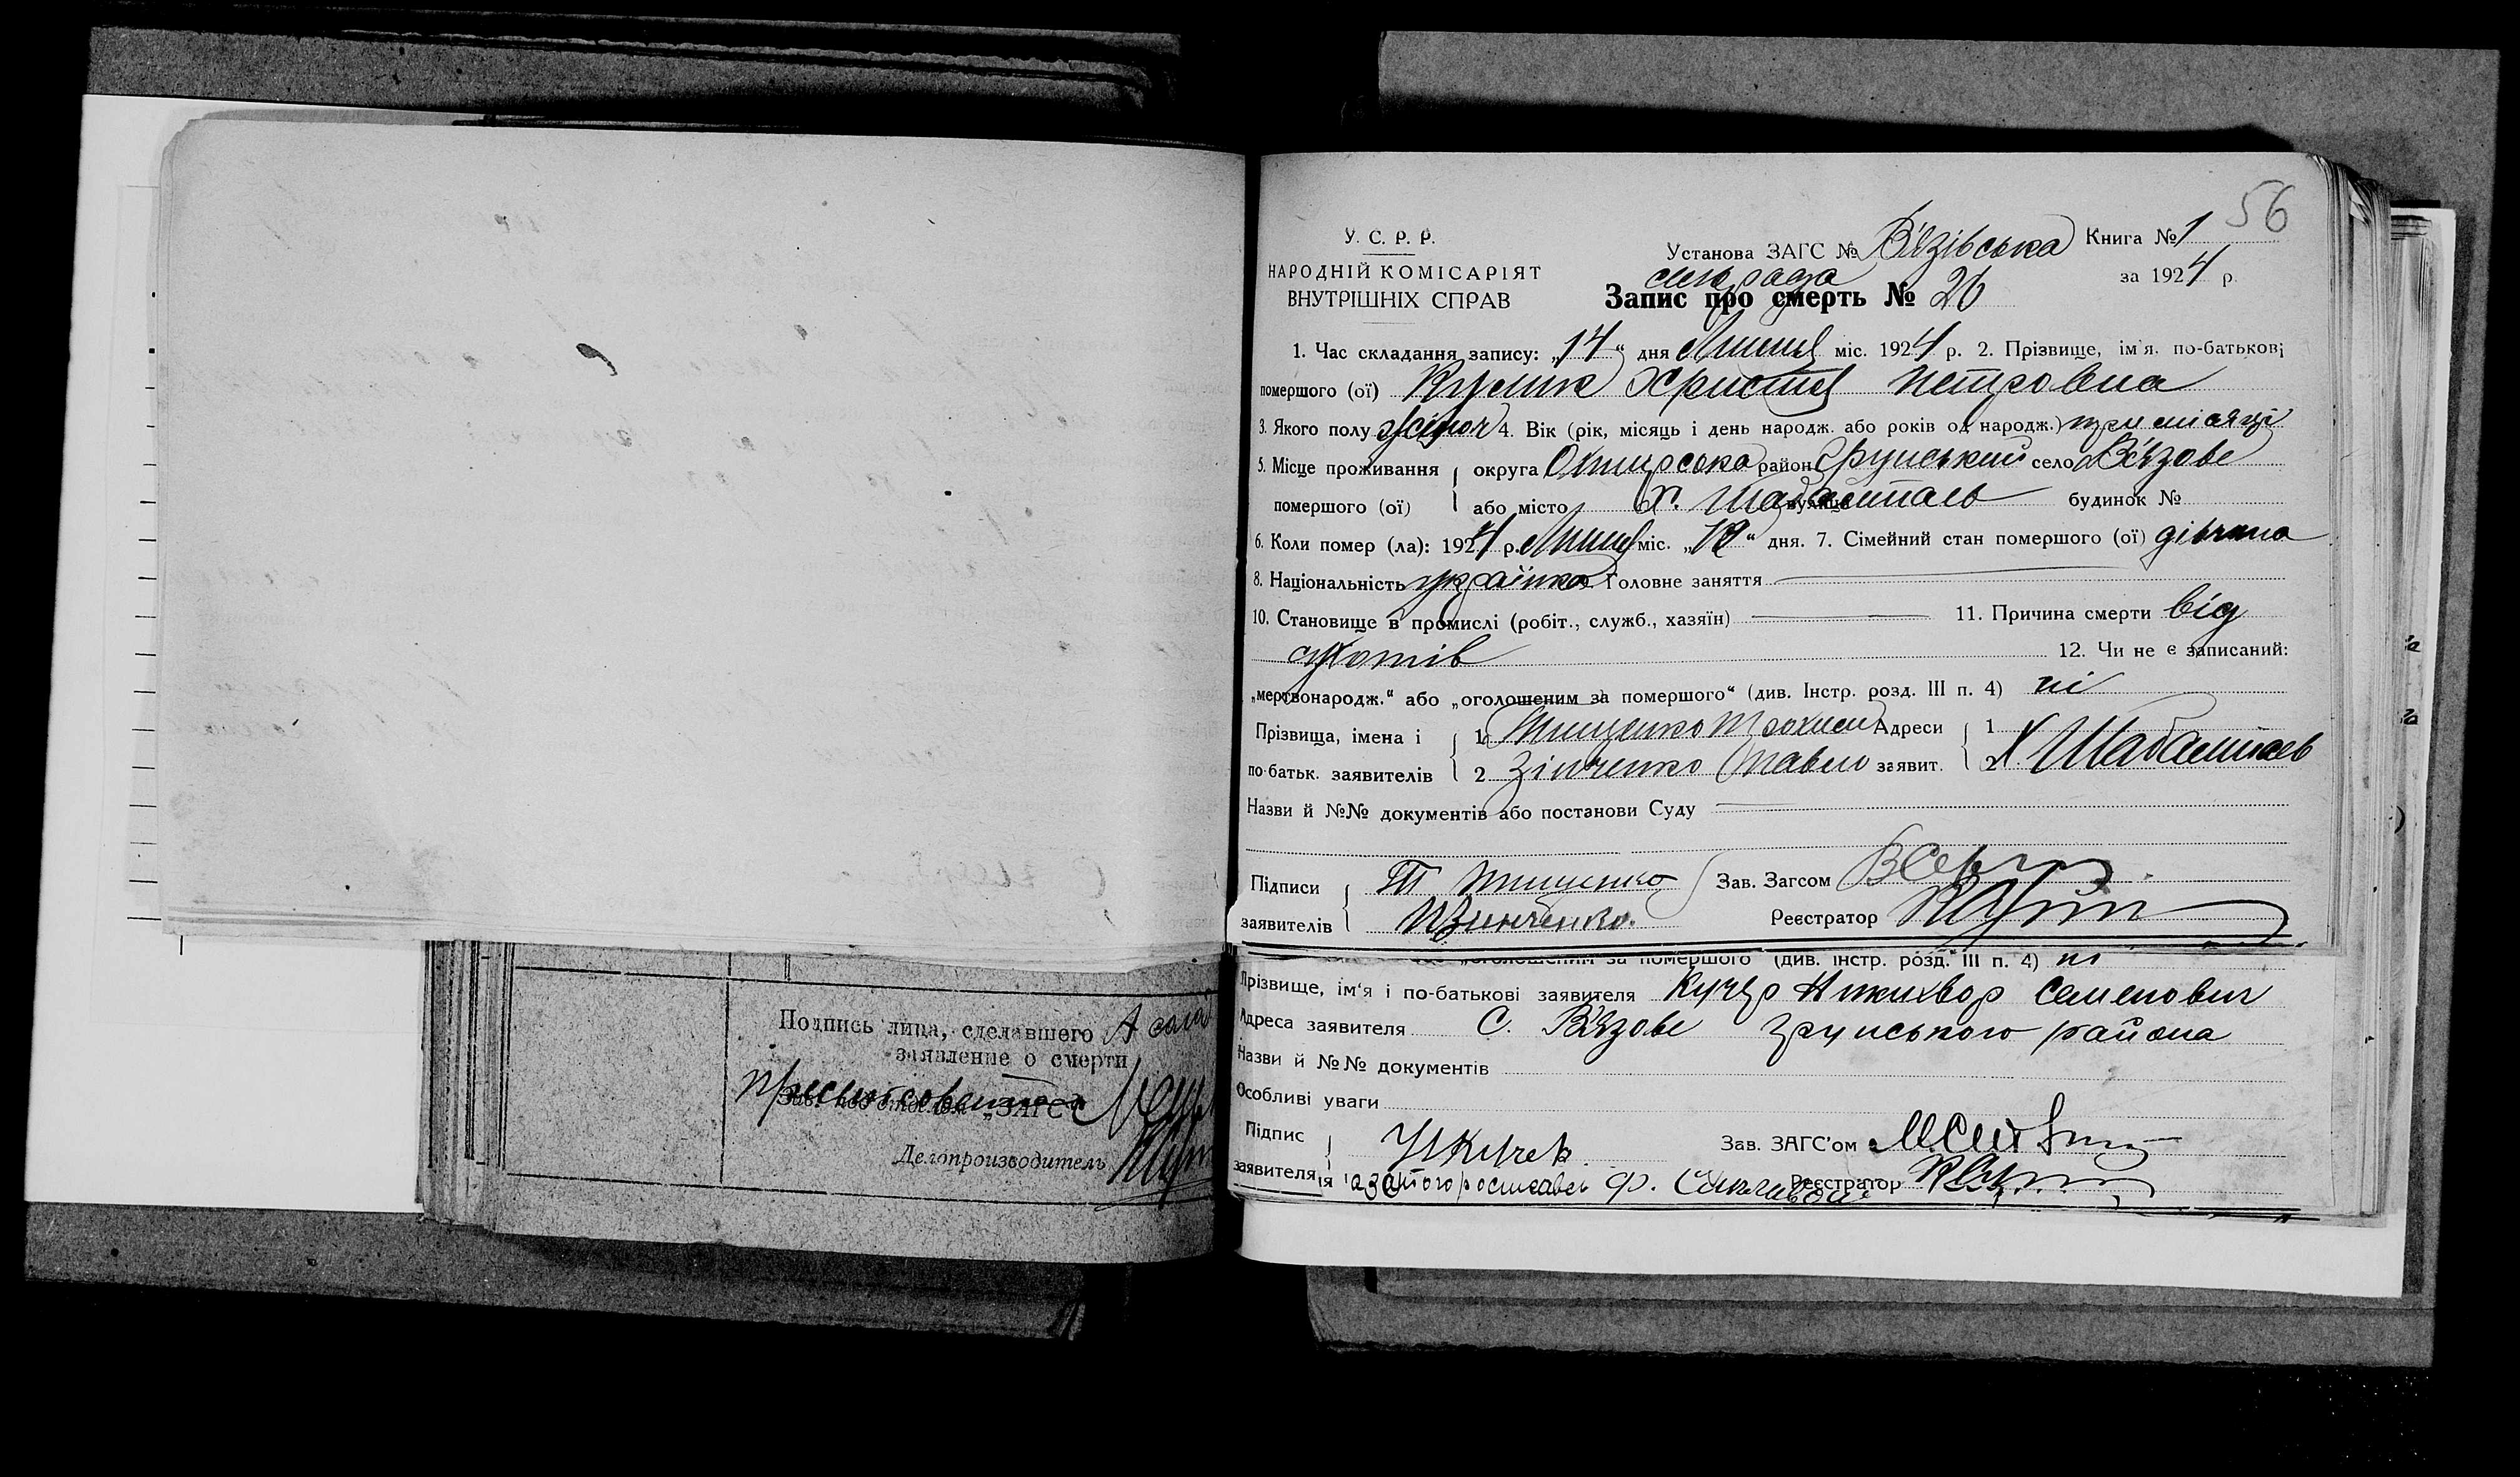 56
У. С. Р. Р.
НАРОДНІЙ КОМІСАРІЯТ
ВНУТРІШНІХ СПРАВ
Установа ЗАГС № Вязівська Книга № 1
сільрада за 1924 р.
Запис про смерть № 26
1. Час складання запису: „14“ дня Липня міс. 1924 р. 2. Прізвище, ім'я, по-батькові
помершого (ої) Кулик Христя Петровна
3. Якого полу жіноч 4. Вік (рік, місяць і день народж. або років од народж.) три місяці
5. Місце проживання округа Охтирська район Грунський село Вязове
помершого (ої) або місто х. вулиця будинок №
6. Коли помер (ла): 1924 р. Липня міс. дня. 7. Сімейний стан помершого (ої) дівчина
8. Національність українка 9. Головне заняття
10. Становище в промислі (робіт., служб., хазяїн) 11. Причина смерти від
12. Чи не є записаний:
„мертвонародж.“ або „оголошеним за помершого“ (див. Інстр. розд. III п. 4) ні
Прізвища, імена і 1 Тищенко Трохим Адреси 1
по-батьк. заявителів 2 Зінченко Павло заявит. 2 х
Назви й №№ документів або постанови Суду
Підписи Т Тищенко Зав. Загсом
заявителів П Зинченко. Реєстратор
„оголошеним за помершого“ (див. Інстр. розд. III п. 4) ні
Прізвище, ім'я і по-батькові заявителя Кучер Никихвор Семенович
Адреса заявителя С. Вязове Грунського района
Назви й №№ документів
Особливі уваги
Підпис Зав. ЗАГС'ом
заявителя Реєстратор
Подпись лица, сделавшего
заявление о смерти
Зав. под'отделом „ЗАГС“
Делопроизводитель